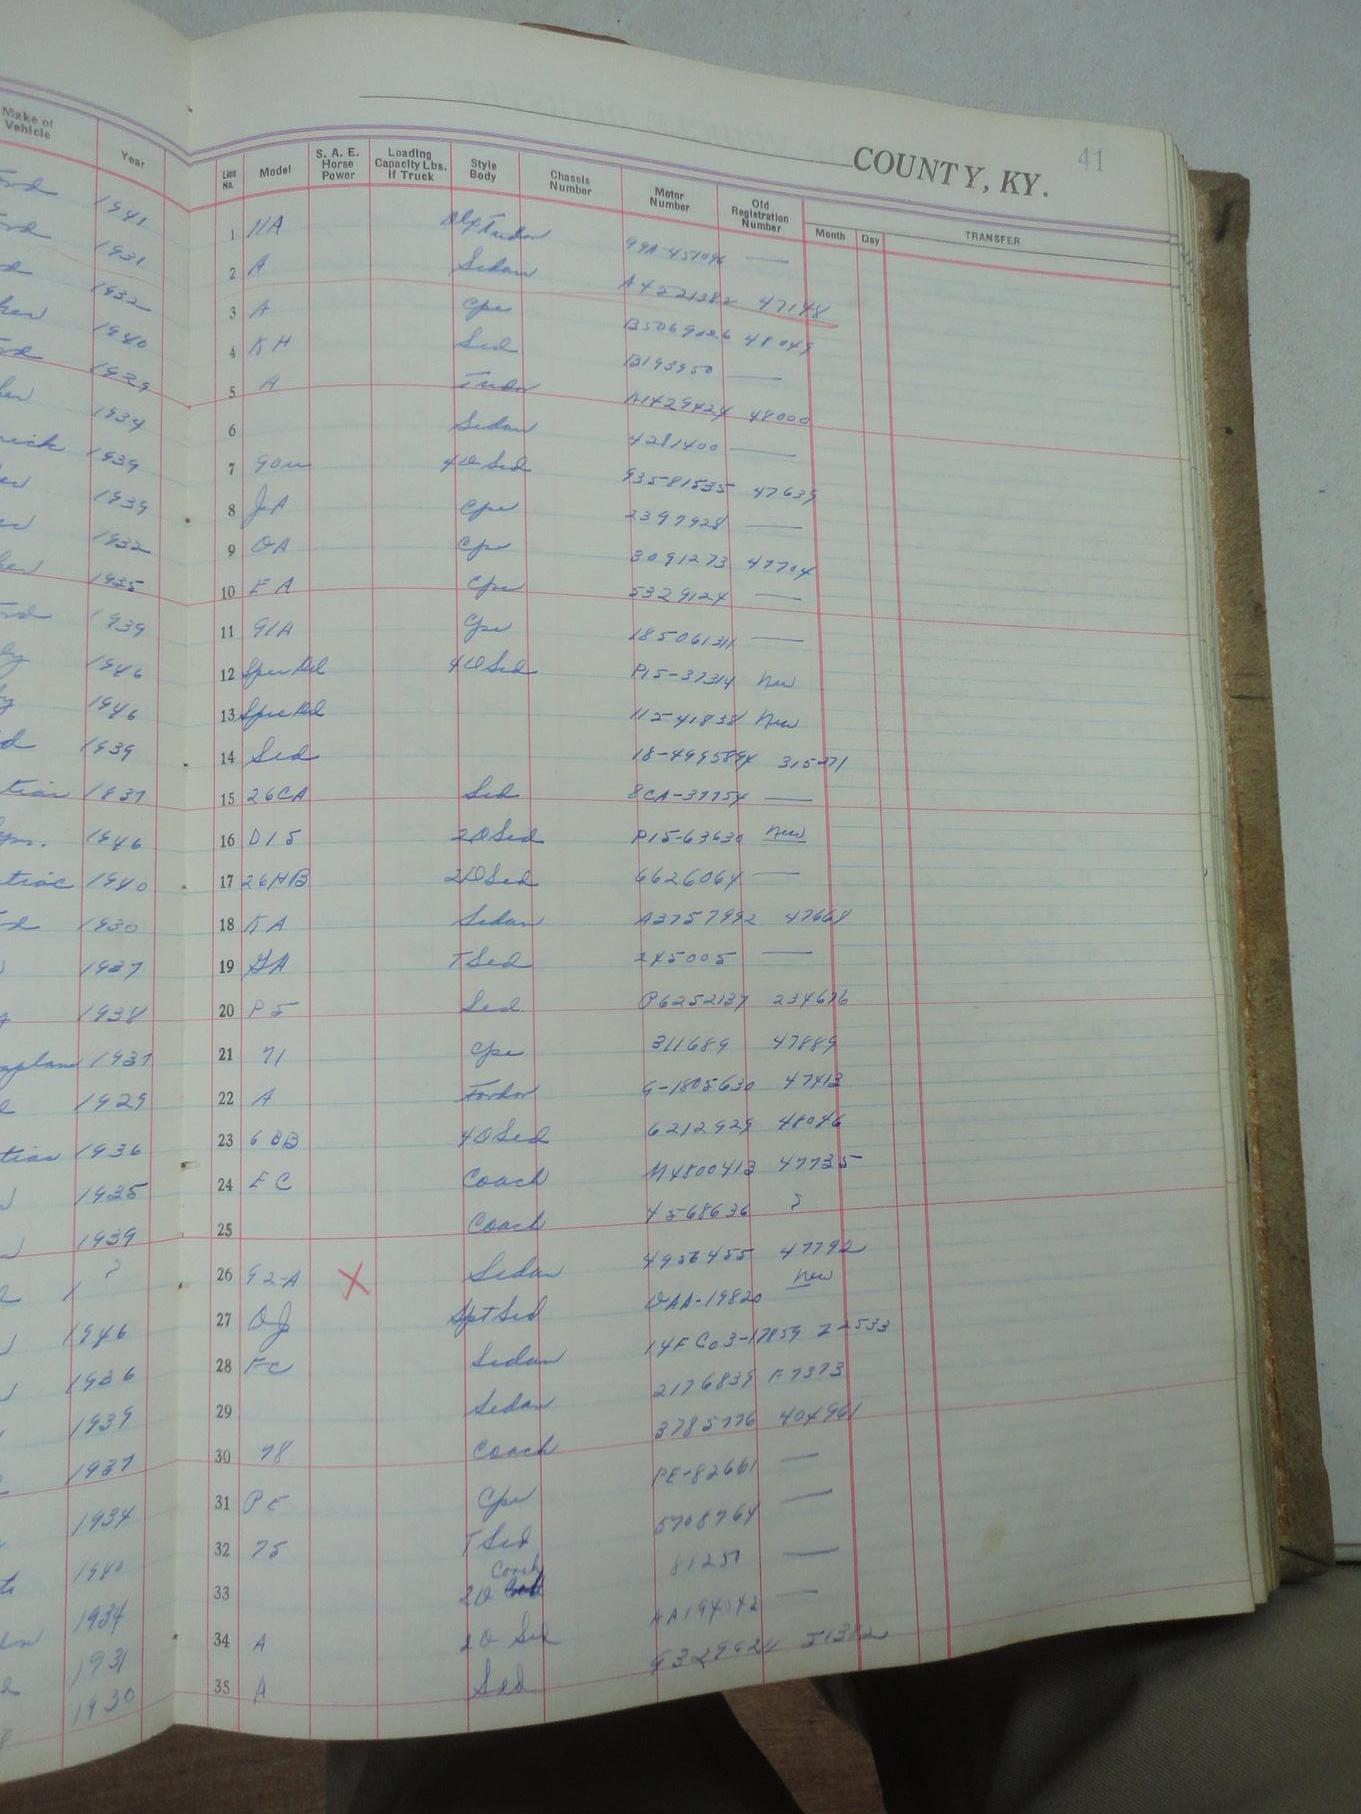 COUNTY, KY. 41
Make of Vehicle Year Line No. Model S. A. E. Horse Power Loading Capacity Lbs. If Truck Style Body Chassis Number Motor Number Old Registration Number Month Day TRANSFER
1941 1 11A Tudor 99A-457096 —
1931 2 A Sedan A4221382 47148
1932 3 A Cpe B5069026 48049
1940 4 KH Sed B193950 —
1929 5 A Tudor A1429424 48000
1934 6 Sedan 4281400 —
1939 7 90u 4D Sed 93581535 47639
1939 8 JA Cpe 2397928 —
1932 9 DA Cpe 3091273 47704
1935 10 EA Cpe 5329124 —
1939 11 91A Cpe 185061311 —
1946 12 4D Sed P15-37314 New
1946 13 112-41838 New
1939 14 Sed 18-4995894 315271
1937 15 26CA Sed 8CA-37754 —
1946 16 D15 2D Sed P15-63630 New
1940 17 26HB 2D Sed 6626064 —
1930 18 KA Sedan A3757992 47668
1937 19 GA T Sed 245005 —
1938 20 P5 Sed P6252137 234676
1937 21 71 Cpe 311689 47889
1929 22 A Fordor G-1805630 47413
1936 23 6BB 4D Sed 6212929 48046
1935 24 EC Coach M4800413 47735
1939 25 Coach 4568636 ?
? 26 92-A X Sedan 4956455 47792
1946 27 DJ Spt Sed DAA-19820 New
1936 28 FC Sedan 14FC03-17859 22533
1939 29 Sedan 2176839 F7373
1937 30 78 Coach 3785776 404961
1934 31 PE Cpe PE-82661 —
1940 32 75 T Sed 5708764 —
1934 33 2D Coach 81257 —
1931 34 A 2D Sed AA194342 —
1930 35 A Sed